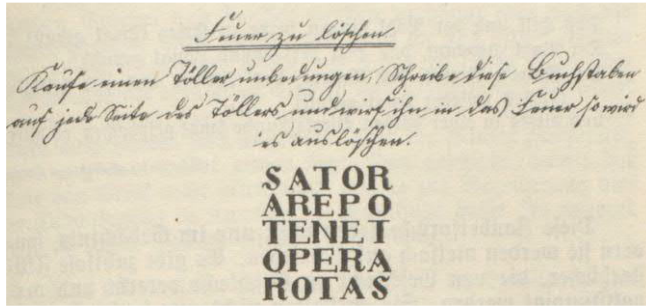 Feuer zu löschen
Kaufe einen Töller unbedungen, Schreibe diese Buchstaben
auf jede Seite des Töllers und wirf ihn in das Feuer so wird
es auslöschen.
SATOR
AREPO
TENET
OPERA
ROTAS